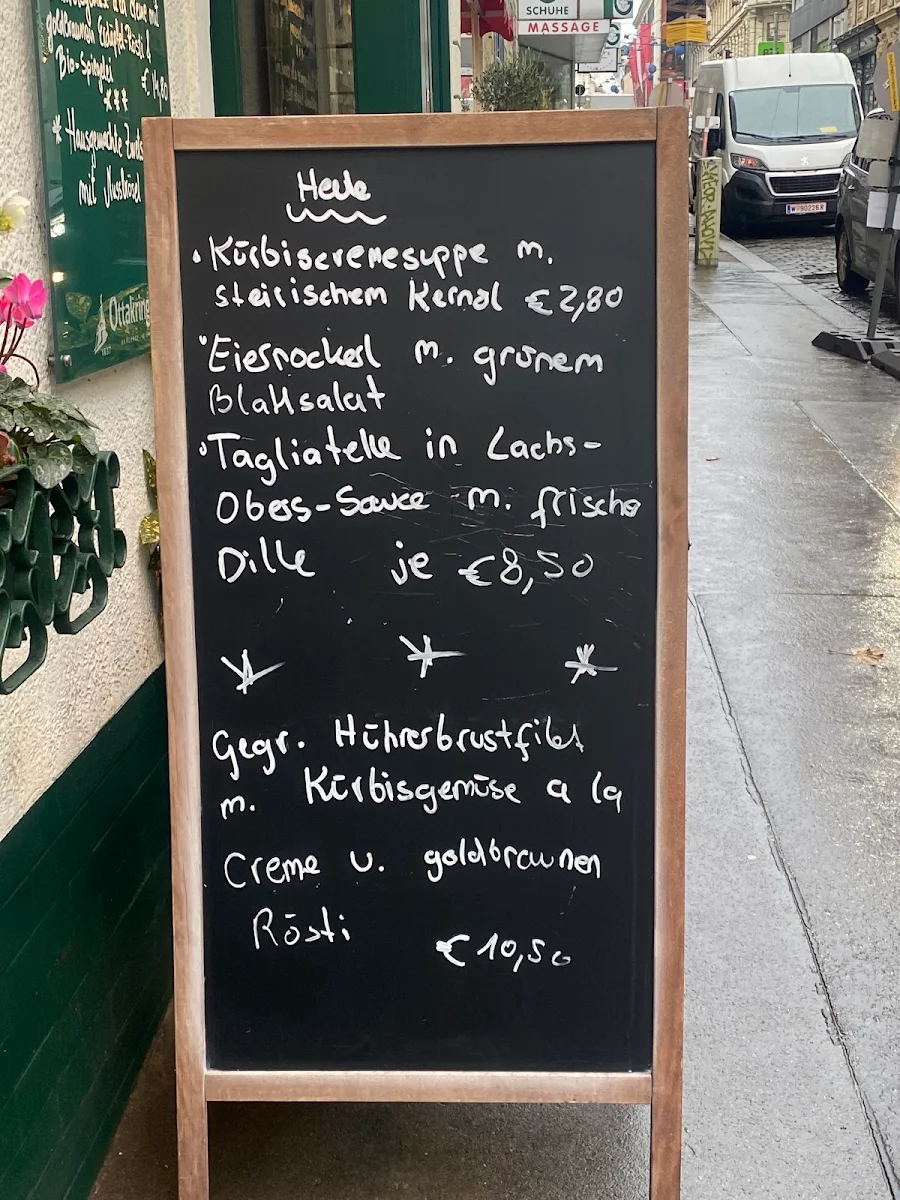 goldbraunen Erdäpfel-Rösti &
Bio-Spiegelei
€ 14,80
* Hausgemachte
mit Nussbrösel
Ottakring
1837
SCHUHE
MASSAGE
W 90226
Heute
• Kürbiscremesuppe m.
steirischem Kernöl € 2,80
• Eiernockerl m. grünem
Blattsalat
• Tagliatelle in Lachs-
Obers-Sauce m. frische
Dille je € 8,50
* * *
Gegr. Hühnerbrustfilet
m. Kürbisgemüse a la
Creme u. goldbraunen
Rösti € 10,50